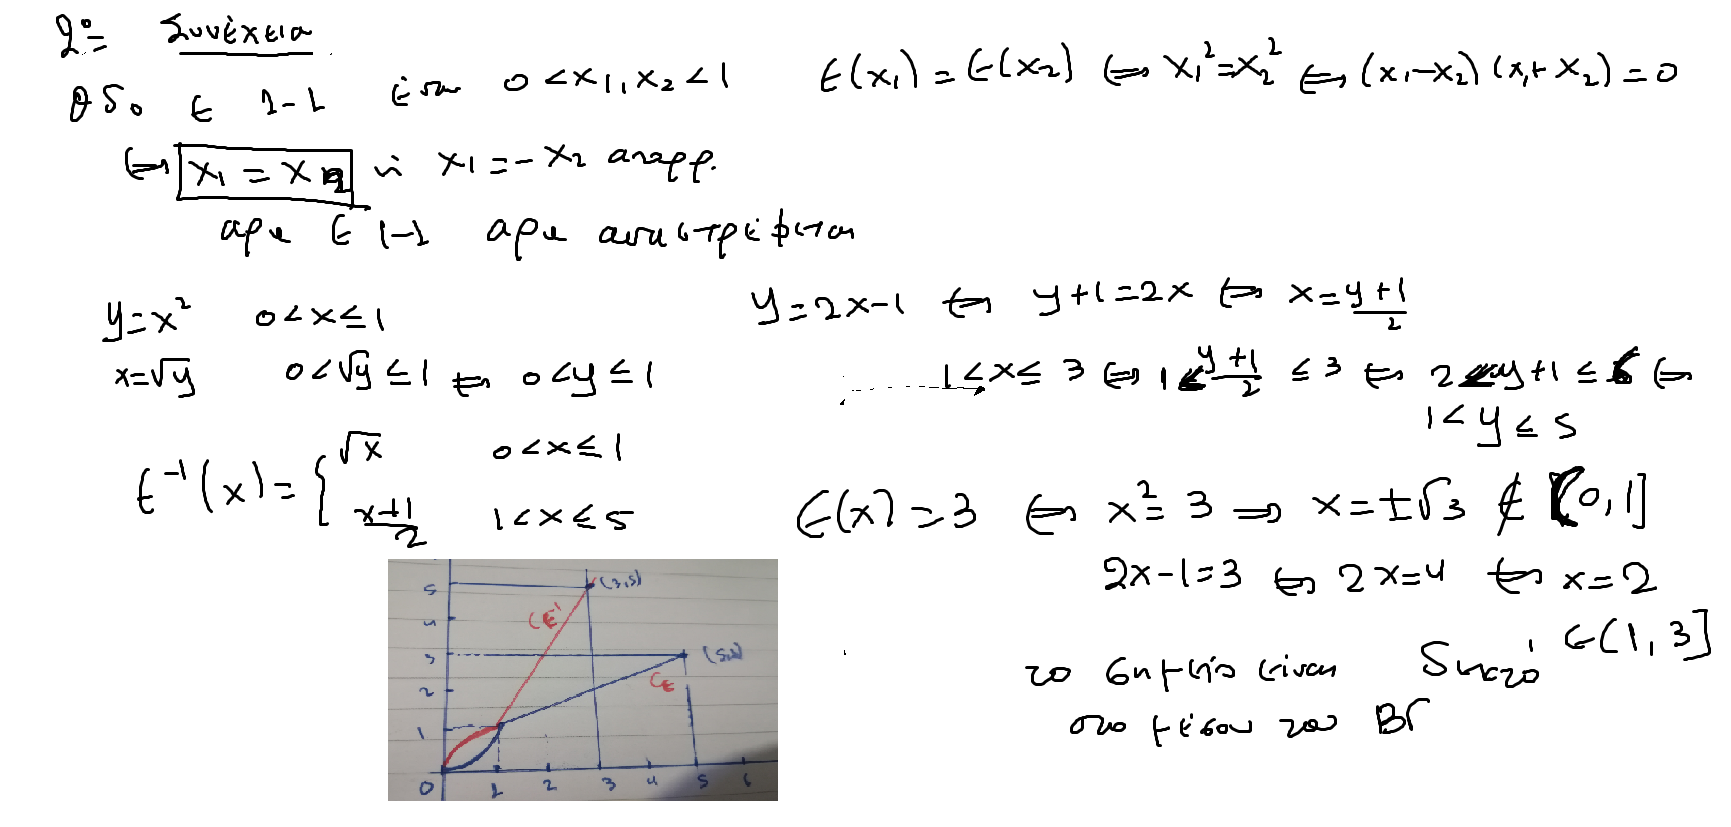 2º Συνέχεια
θδο E 1-1 έστω 0<x₁,x₂<1 E(x₁)=E(x₂) ⟺ x₁²=x₂² ⟺ (x₁-x₂)(x₁+x₂)=0
⟺ x₁=x₂ ή x₁=-x₂ απορρ.
αρα E 1-1 αρα αντιστρέφεται
y=x² 0<x≤1
x=√y 0<√y≤1 ⟺ 0<y≤1
y=2x-1 ⟺ y+1=2x ⟺ x=(y+1)/2
1<x≤3 ⟺ 1<(y+1)/2≤3 ⟺ 2<y+1≤6 ⟺
1<y≤5
E⁻¹(x)={√x 0<x≤1
(x+1)/2 1<x≤5
E(x)=3 ⟺ x²=3 ⟹ x=±√3 ∉ (0,1]
2x-1=3 ⟺ 2x=4 ⟺ x=2
∈(1,3]
το σημείο είναι δηλαδή
στο μέσον του ΒΓ
5 (3,5)
4 C_E'
3
2 C_E
1
0 1 2 3 4 5 6